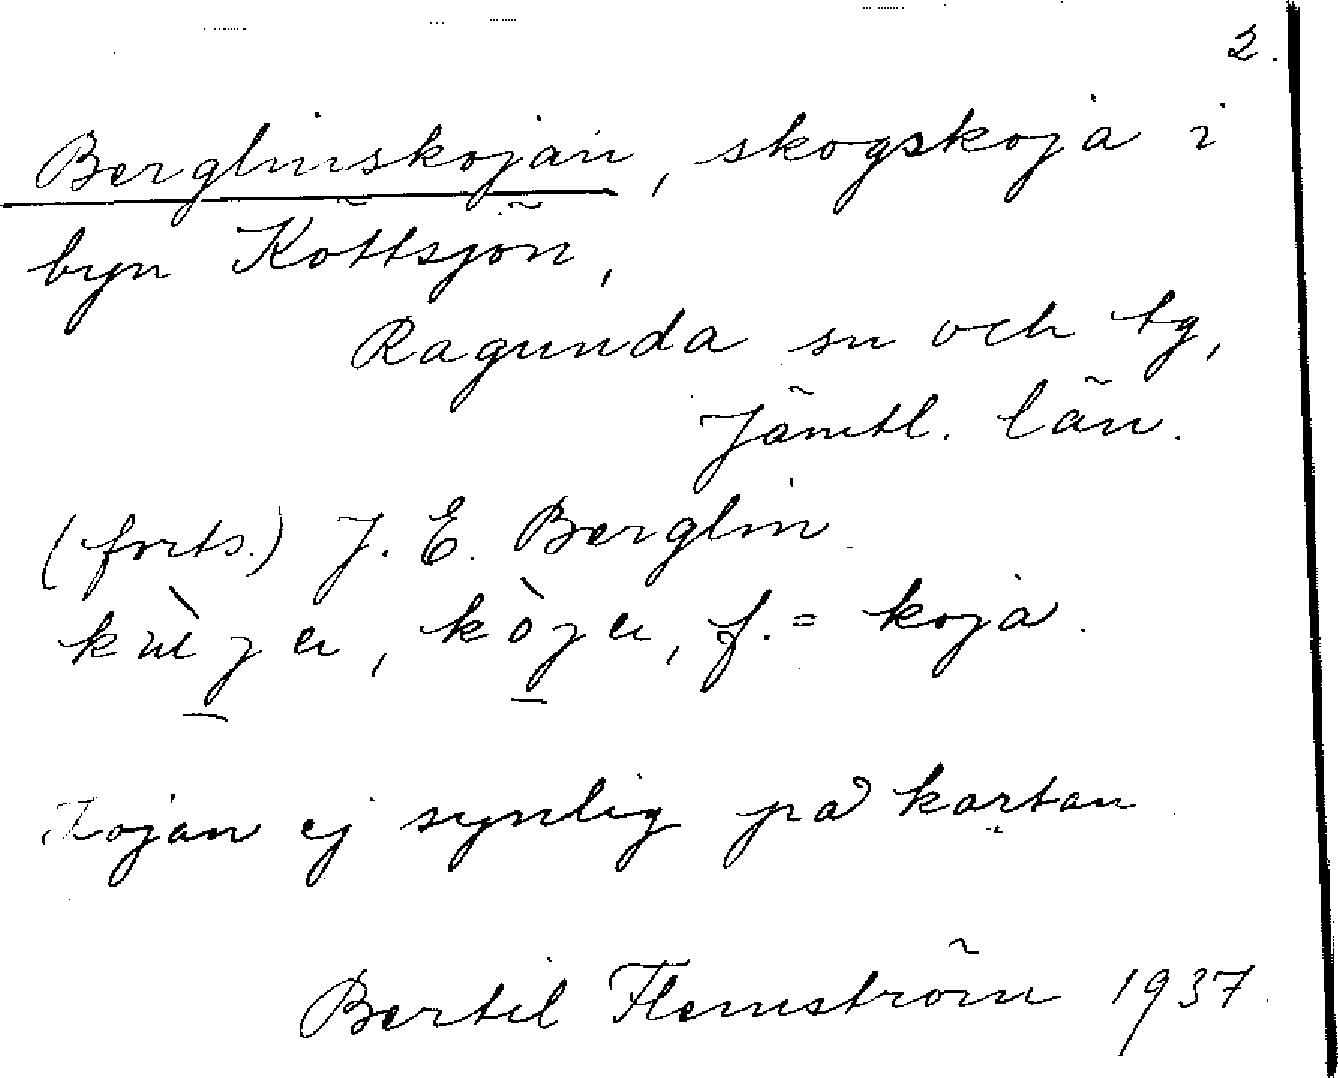 2.
Berglinskojan, skogskoja i
byn Köttsjön,
Ragunda sn och tg,
Jämtl. län.
(forts.) J. E. Berglin
f. = koja.
Kojan ej synlig på kartan
Bertil Flemström 1937.